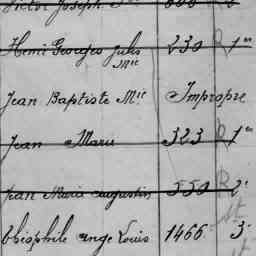 Victor Joseph Mie
Henri Georges Jules Mie 230 1er
Jean Baptiste Mie Impropre
Jean Marie 323 1er
Jean Marie augustin 550 2e
théophile ange Louis 1466 3e